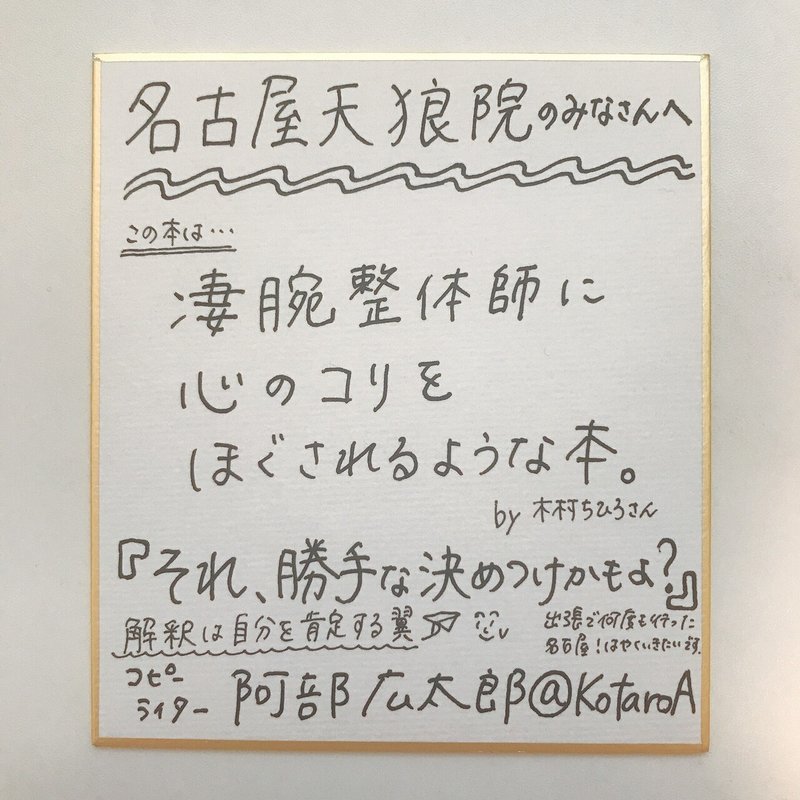 名古屋天狼院のみなさんへ
この本は…
凄腕整体師に
心のコリを
ほぐされるような本。
by 木村ちひろさん
『それ、勝手な決めつけかもよ?』
解釈は自分を肯定する翼
出張で何度も行った
名古屋!はやくいきたいです。
コピー
ライター 阿部広太郎@KotaroA